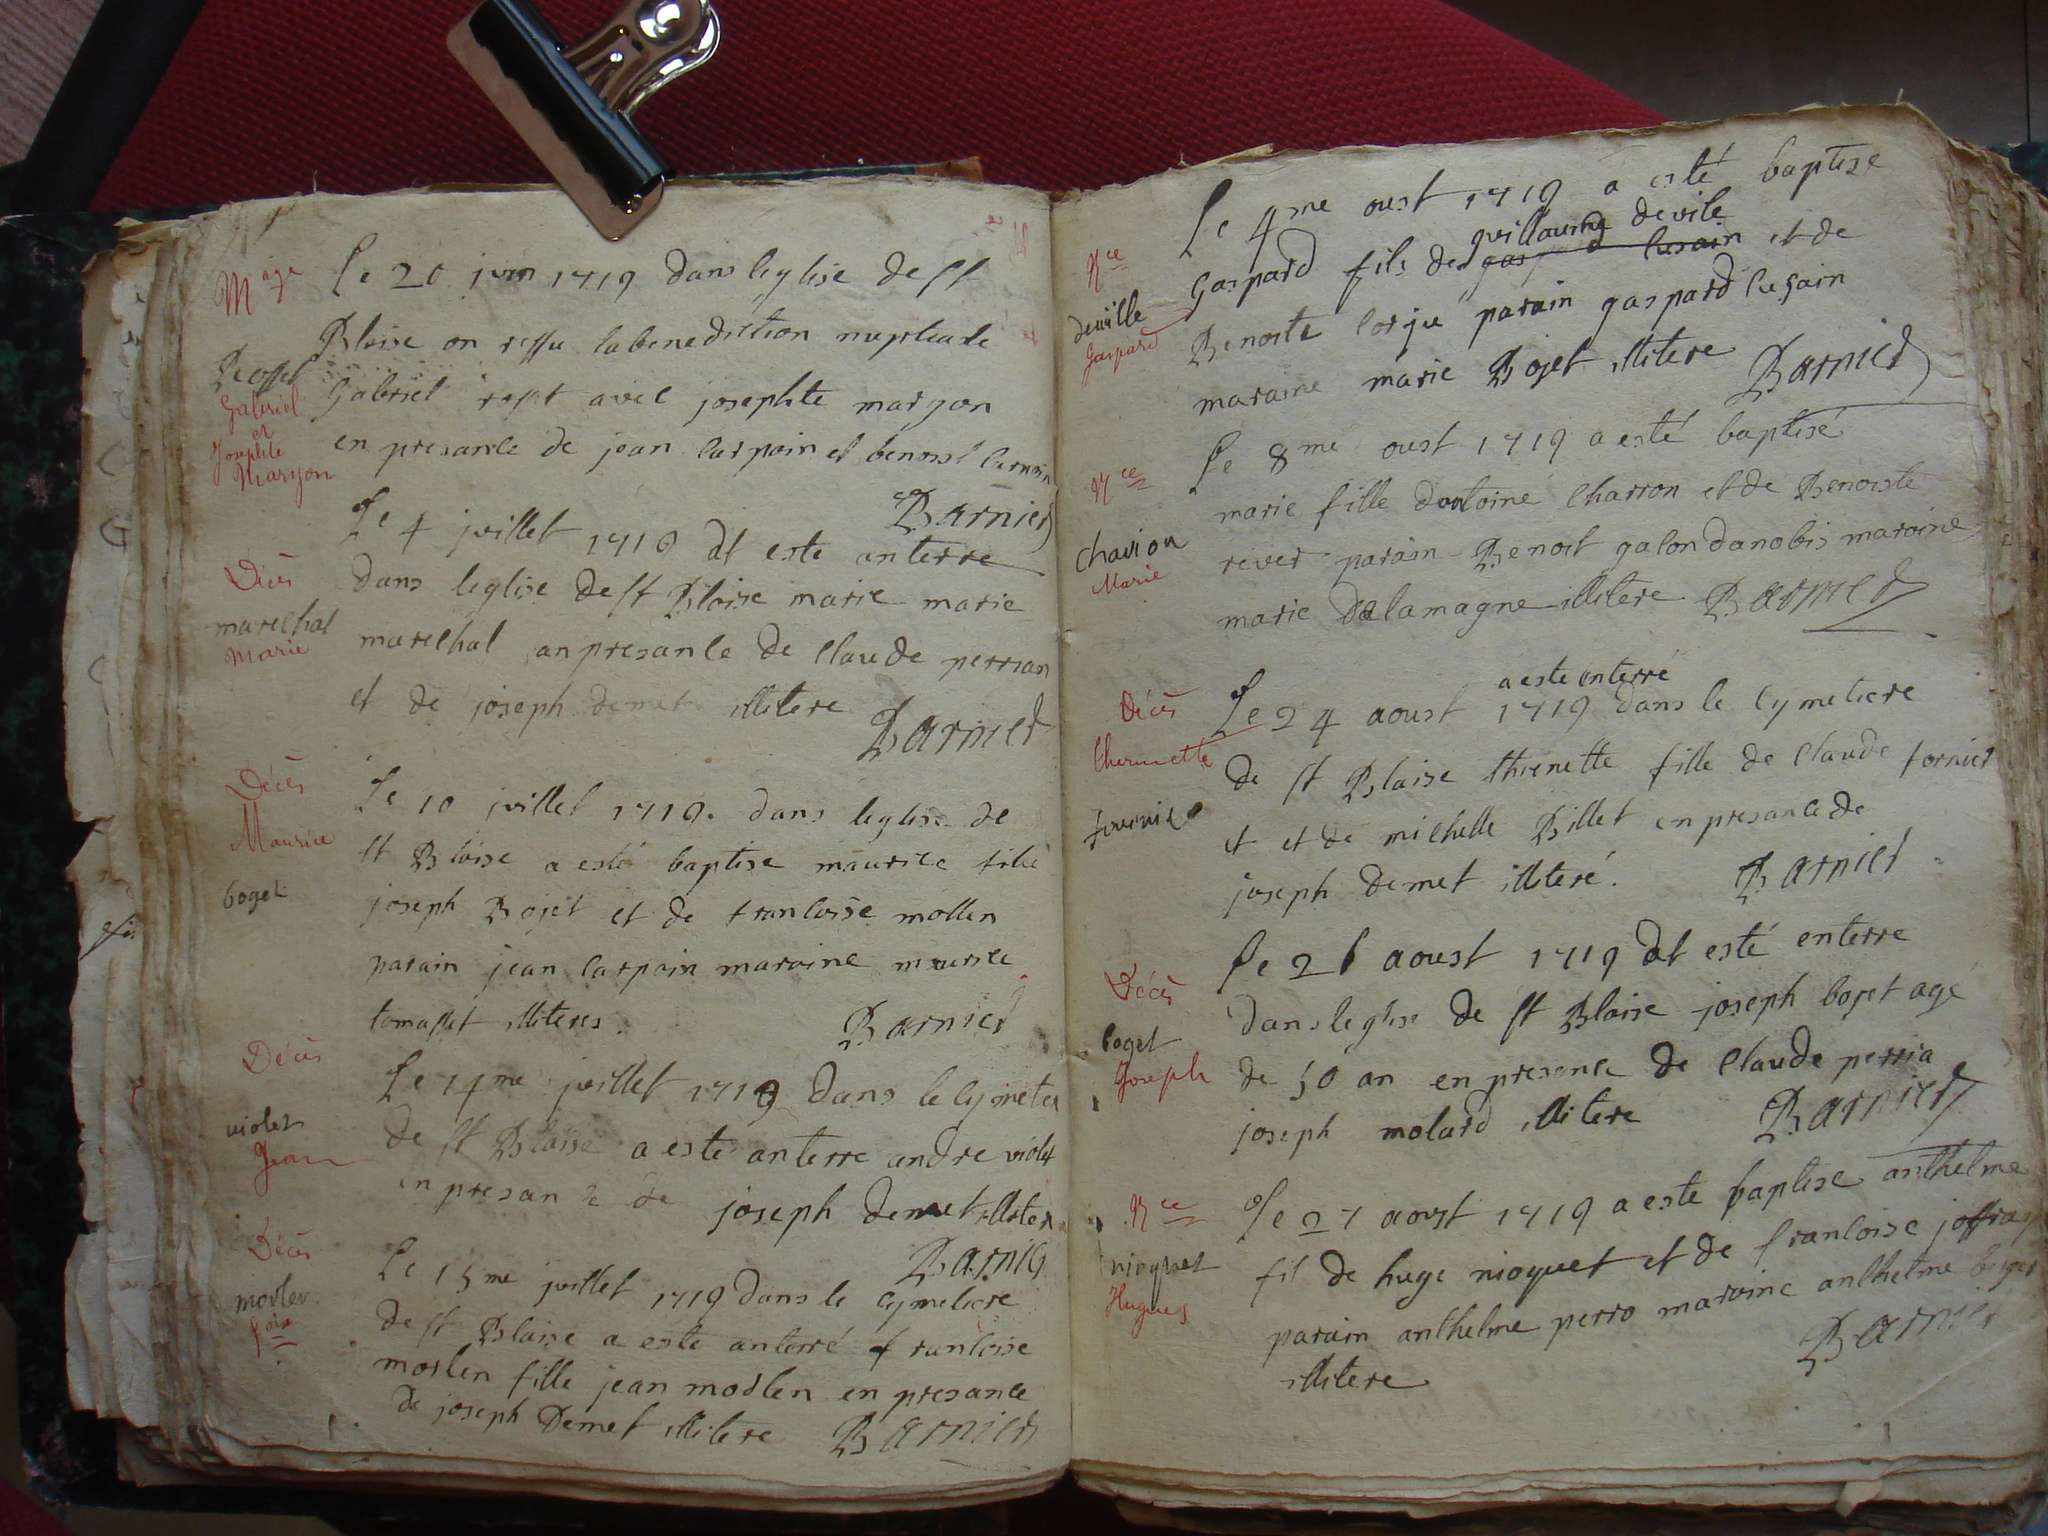 Mage
Le 20 juin 1719 dans leglise de st
Blaise on ressu la benediction nuptiale
Gabriel avec josephte maryon
Gabriel
et
Josephte
Maryon
en presance de jean carpain et benoist
Barnier
Le 4 juillet 1719 at este anterre
Décès
marechal
Marie
dans leglise de st Blaise marie marie
marechal anpresance de Claude perrian
et de joseph demet illitere
Barnier
Décès
Maurice
boget
Le 10 juillet 1719. dans leglise de
st Blaise a esté baptise maurice
joseph Bojet et de francoise mollen
parain jean carpain maraine maurice
tomasset illiteres.
Barnier
Décès
violet
Jean
Le 14me juillet 1719 dans le cymeter
de st Blaise a este anterre andre violet
en presance de joseph demet illiter
Barnie
Décès
morlen
foise
Le 15me juillet 1719 dans le cymetiere
de st Blaise a este anterré francoise
morlen fille jean morlen en presance
de joseph Demet illitere Barnier
Nce
deville
Gaspard
Le 4me oust 1719 a esté baptise
guillaume devile
gaspard fils de gaspard lusain et de
Benoite parain gaspard lusain
maraine marie Bojet illitere Barnier
Nce
Charion
Marie
Le 8me oust 1719 a esté baptisé
marie fille dantoine Charron et de Benoiste
rever parain Benoit galon danobis maraine
marie delamagne illitere Barnier
Décès
Thermette
a este enterré
Le 24 aoust 1719 dans le cymetiere
de st Blaise thienette fille de Claude fornier
et et de michelle Billet en presance de
joseph demet illiteré. Barnier
Décès
boget
Joseph
Le 26 aoust 1719 at esté enterre
dans leglise de st Blaise joseph bojet agé
de 50 an en presence de Claude perria
joseph molard illitere Barnier
Nce
nioquet
Hugues
Le 27 aoust 1719 a este baptise anthelme
fil de huge nioquet et de francoise joffray
parain anthelme perro maraine anthelme
illitere
Barnier